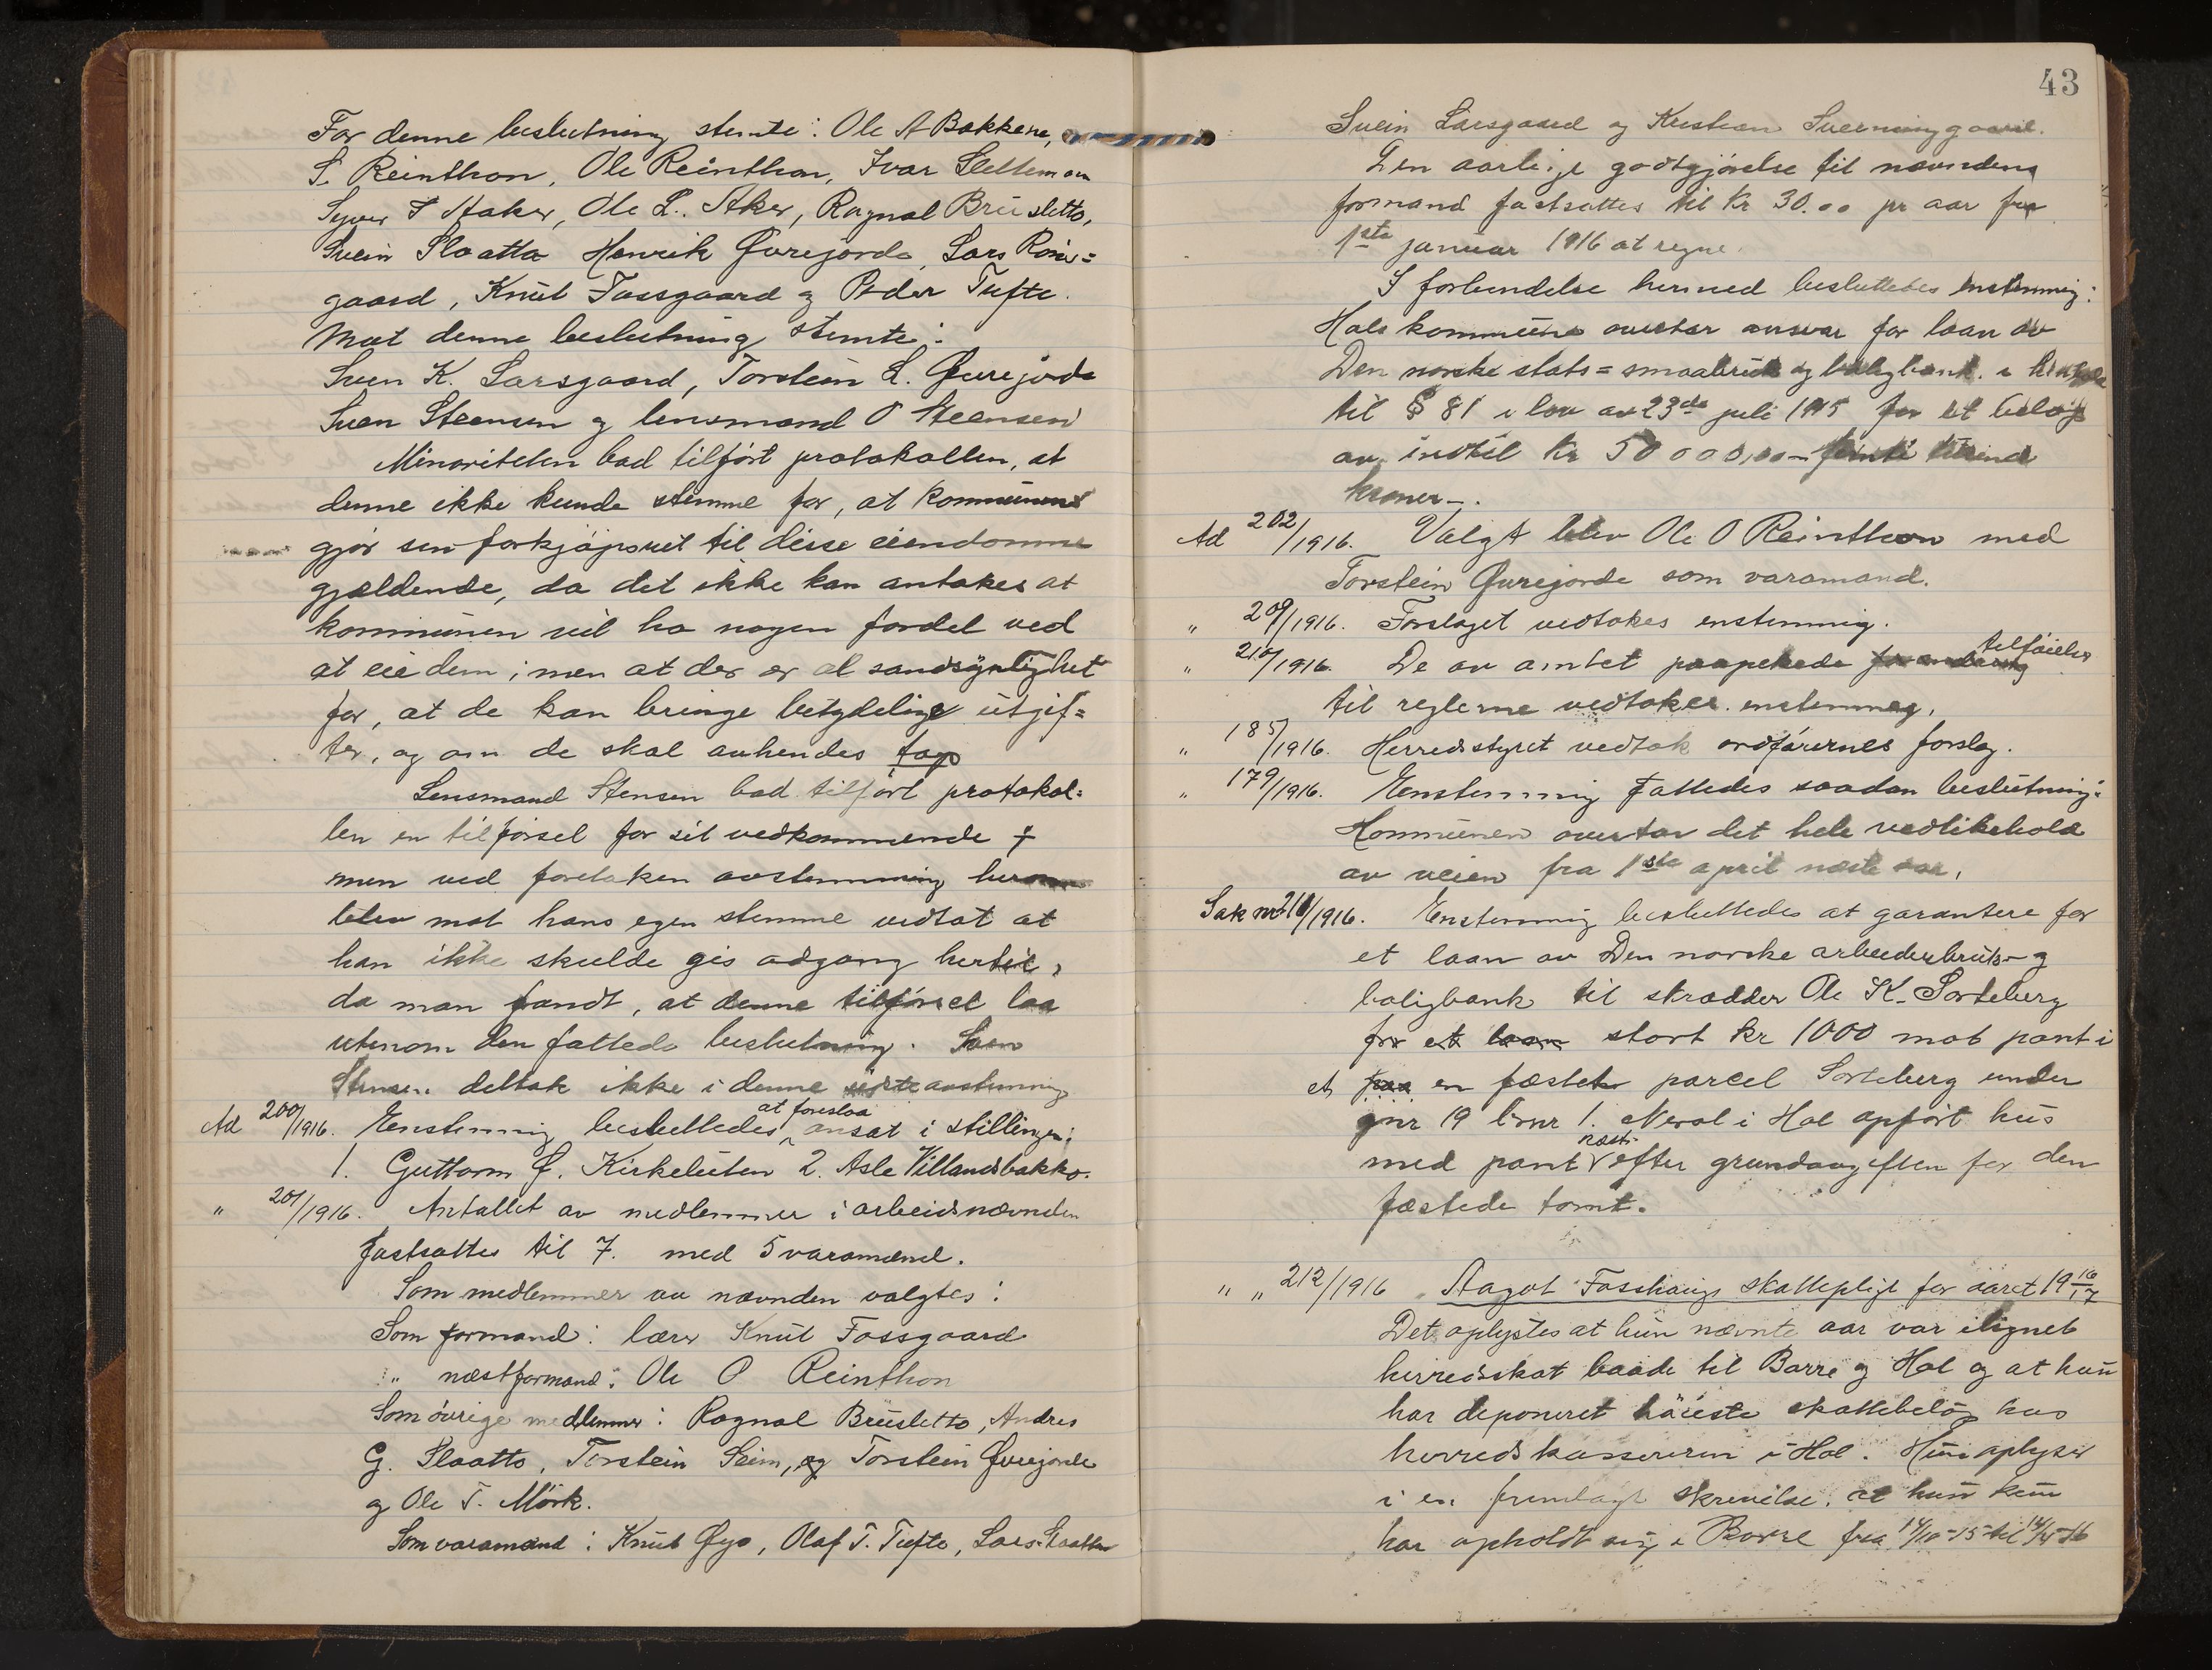 For denne beslutning stemte: Ole A Bakkene,
S. Reinthon, Ole Reinthon, Ivar Slettemoen
Syver T Aaker, Ole L. Aker, Ragnal Brüsletto,
Svein Slaatta Henrik Øvrejorde, Lars Rois=
gaard, Knut Fossgaard og Peder Tufte.
Mot denne beslutning stemte:
Sven K. Larsgaard, Torstein L. Øvrejorde
Sven Steensen og lensmand O Steensen
Minoriteten bad tilført protokollen, at
denne ikke kunde stemme for, at kommunen
gjør sin forkjøpsret til disse eiendomme
gjældende, da det ikke kan antakes at
kommunen vil ha nogen fordel ved
at eie dem; men at der er al sandsynlighet
for, at de kan bringe betydelige utgif=
ter, og om de skal avhendes tap
Lensmand Stensen bad tilført protokol=
len en tilførsel for sit vedkommende
men ved foretaken avstemning herom
blev mot hans egen stemme vedtat at
han ikke skulde gis adgang hertil,
da man fandt, at denne tilførsel laa
utenom den fattede beslutning. Sven
Stensen deltok ikke i denne sidste avstemning
Ad 200/1916. Enstemmig besluttedes at foreslaa ansat i stillingen:
1. Guttorm Ø. Kirkeluten 2. Asle Villandsbakko.
" 201/1916. Antallet av medlemmer i arbeidsnævnden
fastsattes til 7. med 5 varamænd.
Som medlemmer av nævnden valgtes:
Som formand: lærer Knut Fossgaard
" næstformand: Ole O Reinthon
Som øvrige medlemmer: Ragnal Brüsletto, Andres
G. Slaatto, Torstein Seim, og Torstein Øvrejorde
og Ole T. Mörk.
Som varamænd: Knut Øyo, Olaf T. Tufte, Lars Slaatta
43
Svein Larsgaard og Kristian Sverninggaard.
Den aarlige godtgjørelse til nævndens
formand fastsattes til kr 30.00 pr aar fra
1ste januar 1916 at regne.
I forbindelse hermed besluttedes enstemmig:
Hols kommune overtar ansvar for laan av
Den norske stats=smaabruk og boligbank i henhold
til § 81 i lov av 23de juli 1915 for et beløp
av indtil kr 50 000,00 – femti tusind
kroner –.
Ad 202/1916. Valgt blev Ole O Reinthon med
Torstein Øvrejorde som varamand.
" 209/1916. Forslaget vedtokes enstemmig.
" 210/1916. De av amtet paapekede forandring tilføielser
til reglerne vedtokes enstemmig.
" 185/1916. Herredsstyret vedtok ordførernes forslag.
" 179/1916. Enstemmig fattedes saadan beslutning:
Kommunen overtar det hele vedlikehold
av veien fra 1ste april næste aar.
Sak nr 211/1916. Enstemmig besluttedes at garantere for
et laan av Den norske arbeiderbruk- og
boligbank til skrædder Ole K. Sorteberg
for et laan stort kr 1000 mot pant i
et paa en fæstet parcel Sorteberg under
gnr 19 brnr 1. Neral i Hol opført hus
med pant næst efter grundavgiften for den
fæstede tomt.
" " 212/1916 Aagot Fosshaugs skattepligt for aaret 1916/17
Det oplystes at hun nævnte aar var ilignet
herredsskat baade til Borre og Hol og at hun
har deponeret höieste skattebeløp hos
herredskassereren i Hol. Hun oplyser
i en fremlagt skrivelse at hun kun
har opholdt sig i Borre fra 14/10-15 til 14/4-16